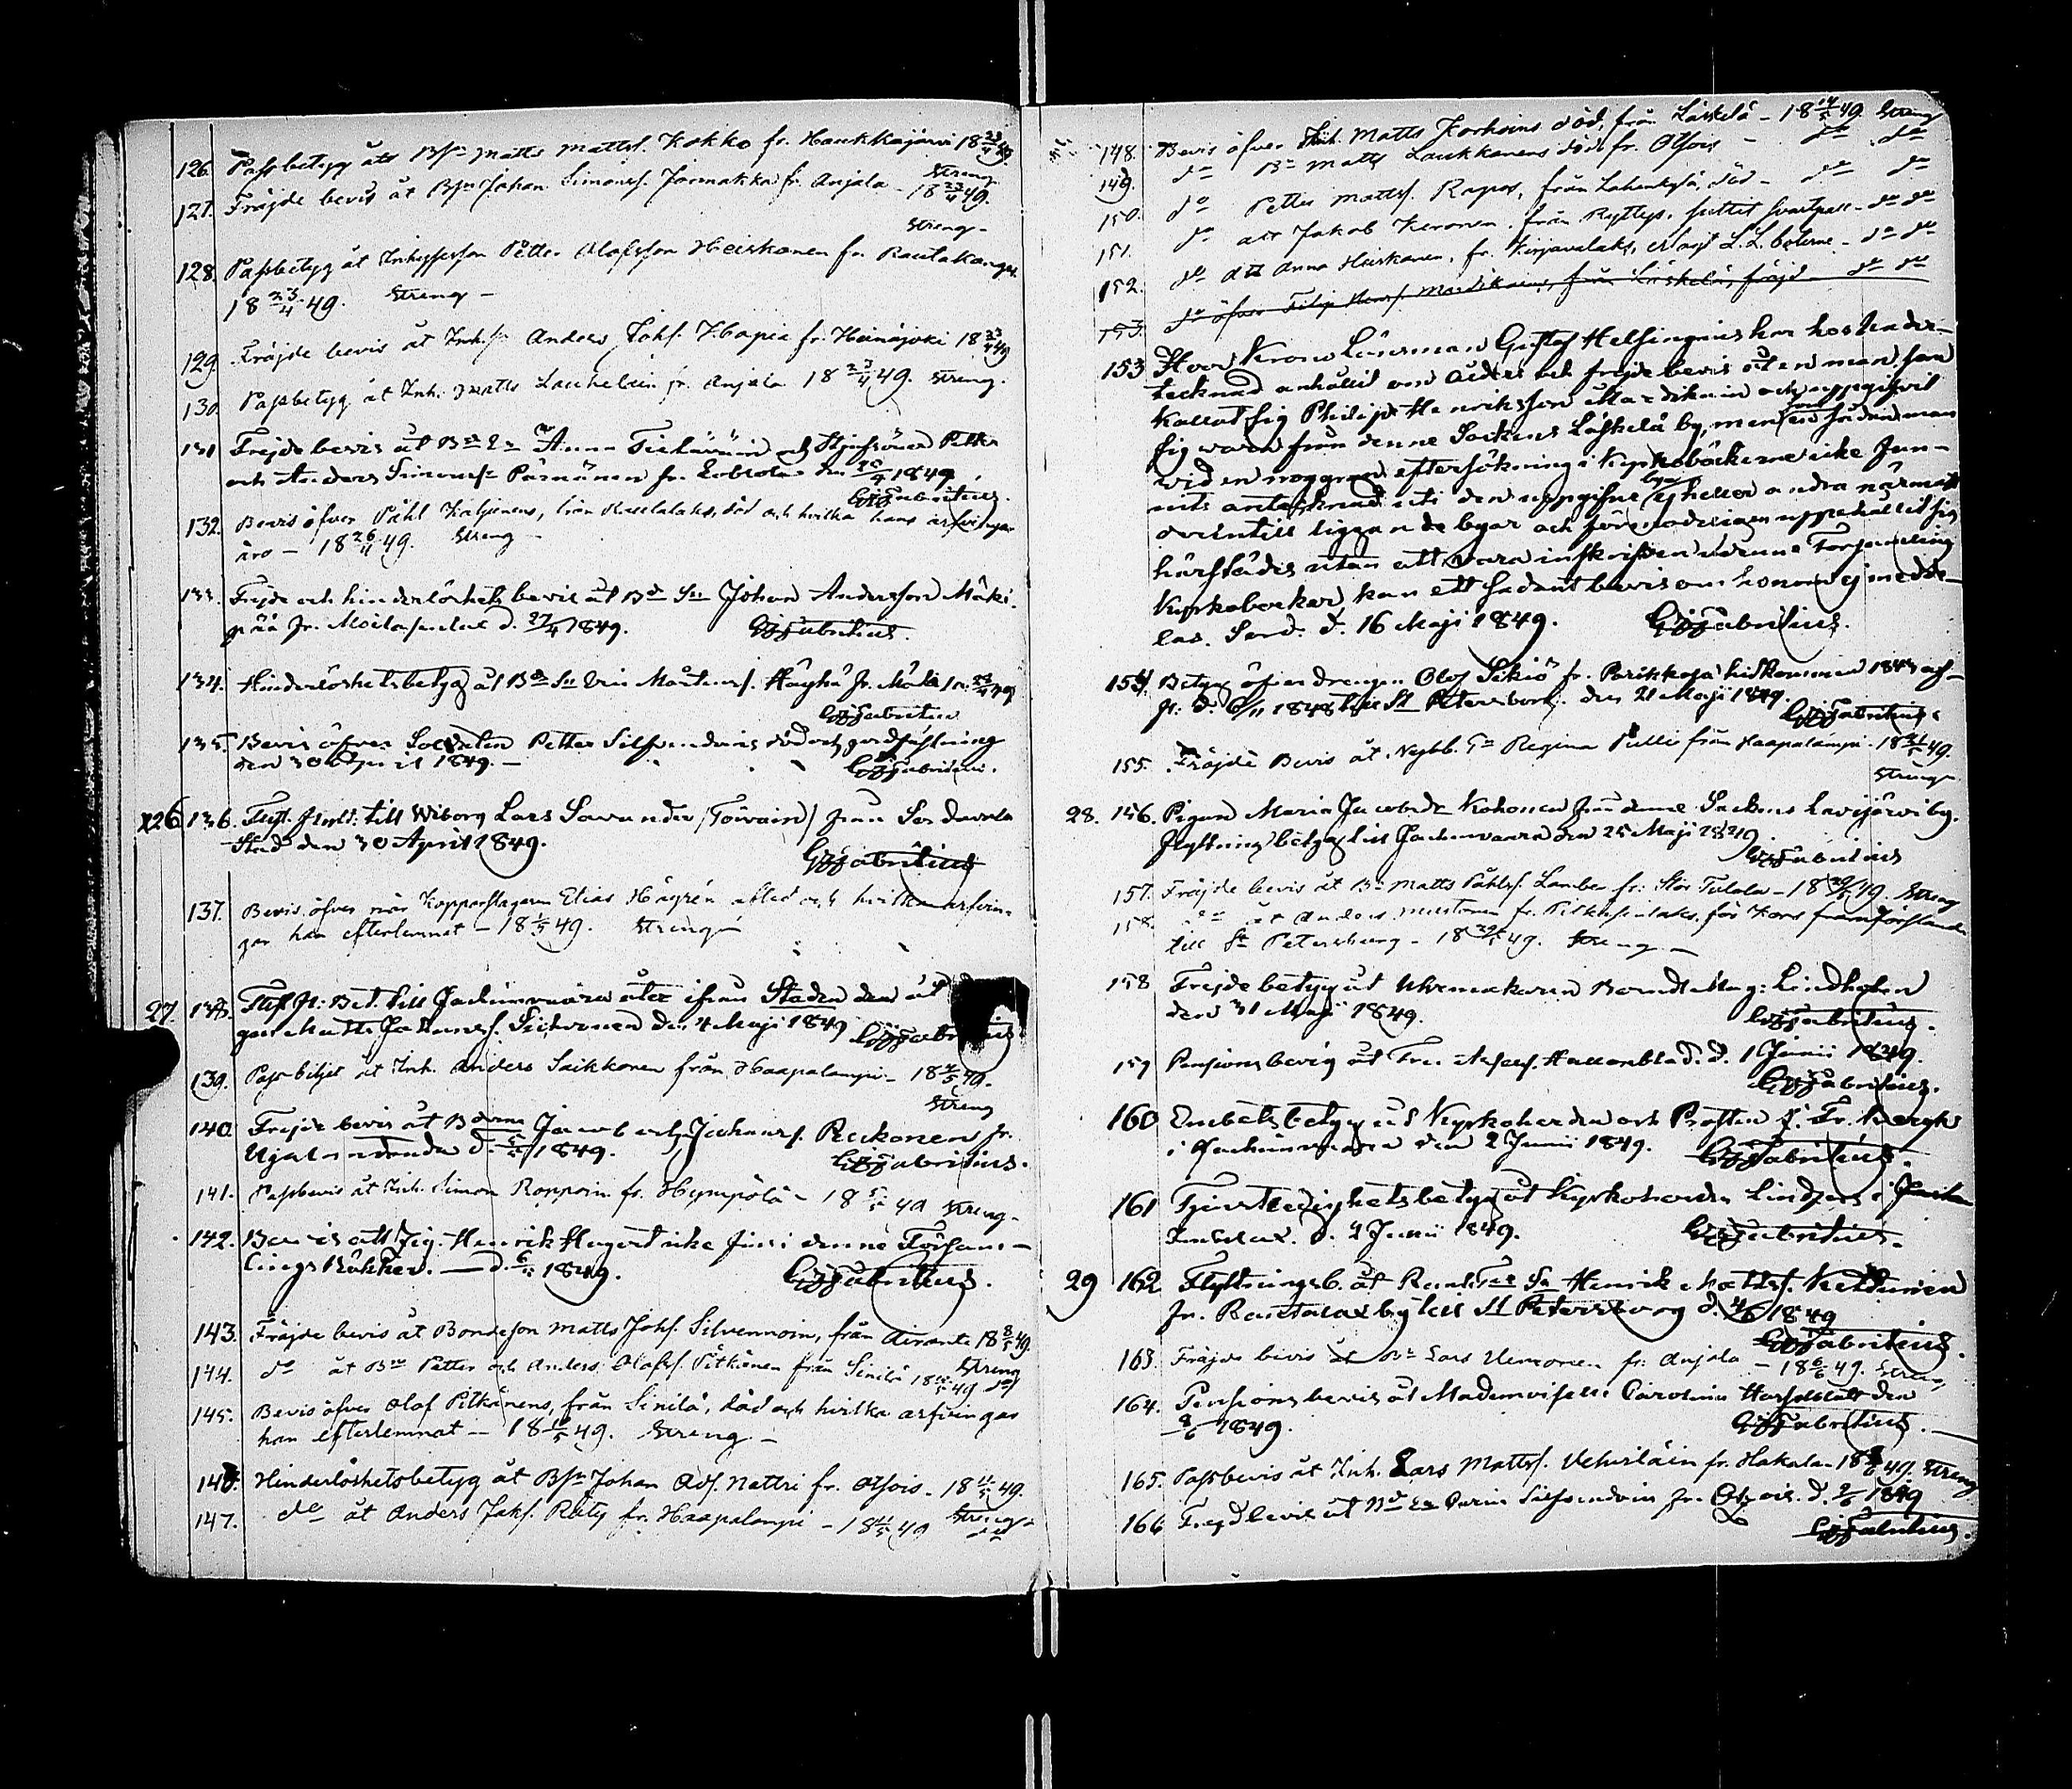 126. Passbetyg åt Bsn Matts Mattss. Kokko fr. Haukkajärvi 18 23/4 49.
Streng
127. Fräjde bevis åt Bsn Johan Simonss. Jormakka fr. Anjala - 18 23/4 49.
Streng -
128. Passbetyg åt Inhysesson Petter Olofsson Heiskanen fr. Rautakangas
18 23/4 49. Streng -
129. Fräjde bevis åt Inh.sn Anders Johs. Haapia fr. Heinäjoki 18 23/4 49
130. Passbetyg åt Inh. Matts Laukelain fr. Anjala 18 23/4 49. Streng.
131 Frejde bevis åt Anna och Styfsönen Petter
och Anders Simonss. Pärnänen fr. den 25/4 1849
GJFabritius.
132. Bevis öfver Påhl död och hvilka hans arfvingar
äro - 18 26/4 49. Streng -
133. Frejde och hinderlöshets bevis åt Johan Andersson Mäki-
pää fr. d. 27/4 1849. GJFabritius.
134. Hinderlöshetsbetyg åt Mårtenss. Häyhä fr.
GJFabritius
135. Bevis öfver Soldaten Petter Silfvendoins död och jordfästning
den 30 April 1849. - GJFabritius.
X26 136. Flyt. till Wiborg Lars Savander /Toivain/ från Sordavala
Stad den 30 April 1849.
GJFabritius
137. Bevis öfver när Kopparslagaren Elias Hägrén afled och hvilka arfvin-
gar han efterlemnat - 18 1/5 49. Streng -
27. 138. Bet. till Jachimvaara ifrån Staden den åt
Matts Johanss. den 4 Maji 1849 GJFabritius
139. Pass biljet åt Inh. Anders Saikkonen från Haapalampi - 18 5/5 49.
Streng
140 Frejde bevis åt Bönderne Jacob och Johanss. Reikonen fr.
d. 5/5 1849. GJFabritius.
141. Passbevis åt Inh. Simon Ropponin fr. Hympölä - 18 5/5 49 Streng -
142. Bevis att Jäg. Henrik Hagert icke finns i denne Försam-
lings Böcker. - d. 6/5 1849. GJFabritius.
143. Fräjde bevis åt Bondeson Matts Johs. Silvennoin, från Airanta 18 8/5 49.
Streng
144. do åt Petter och Anders Olofss. Pitkänen från Sinilä 18 10/5 49 do
145. Bevis öfver Olof Pitkänens, från Sinilä, död och hvilka arfvingar
han efterlemnat - 18 10/5 49. Streng -
146. Hinderlöshetsbetyg åt Bsn Johan Ads. Nattri fr. Otsois - 18 11/5 49.
Streng -
147. do åt Anders Jaks. Räty fr. Haapalampi - 18 11/5 49 do
148. Bevis öfver Inh. Matts Korhoins död, från Läskelä - 18 14/5 49. Streng
149. do Bn Matts Laukkanens död fr. Otsois - do do
150. do Petter Mattss. Rapos, från Lahenkylä, död - do do
151. do att Jakob Keronen, från suttit - do do
152. do att Anna Heiskanen, fr. Kirjavalaks, erlagt L.L. böterne - do do
153. do öfver Filip Henss. Mardikains, från Läskelä, fräjd - do do
153 Herr Krono Länsman Gustaf Helsingius har hos under-
tecknad anhållit om ålders och frejde bevis åt en man som
kallat sig Philip Henriksson Mardikain och uppgifvit
sig vara från denne Sockens Läskelä by, men som en sådan man
vid en noggran eftersökning i Kyrkoböckerne icke fun-
nits antecknad uti den uppgifne byn ej heller andra närmast
derintill liggande byar och förmodeligen uppehållit sig
härstädes utan att vara inskrifven i denne Församling
Kyrkoböcker, kan ett sådant bevis om honom ej medde-
las. Sord. d. 16 Maji 1849. GJFabritius.
154. Betyg öfver drengen Olof Sikiö fr. Parikkala hitkommen 1843
d. 6/11 1848 till St Petersborg. den 21 Maji 1849.
GJFabritius
155. Fräjde Bevis åt Regina Pulli från Haapalampi - 18 21/5 49.
Streng
28. 156. Pigan Maria Jacobsdr Kohonen från denne Sockens Lavijärvi by.
flyttnings betyg till Jachimvaara den 25 Maji 1849.
GJFabritius
157. Fräjde bevis åt Bn Matts Påhlss. Lamber fr. Stor Tulola - 18 29/5 49. Streng
158. do åt Anders Mustonen fr. för
till St Petersburg - 18 29/5 49. Streng -
158 Frejde betyg åt Uhrmakaren Berndt Mag: Lindholm
den 31 Maji 1849. GJFabritius.
159 Pensions bevis åt Hallonblad. d. 1 Junii 1849.
GJFabritius.
160 Embets betyg åt Kyrkoherden och Prosten J. Fr. Bergh
i Jachimvaara den 2 Junii 1849. GJFabritius.
161 Tjenstledighets betyg åt Kyrkoherden
d. 4 Junii 1849. GJFabritius.
29 162 Flyttnings b. åt Henrik Mattss. Nenonen
fr. Rautalax by till St Petersborg d. 4/6 1849
GJFabritius.
163. Fräjde bevis åt Bn Lars Uimonen fr. Anjala - 18 6/6 49. Streng
164. Pensions bevis åt Mademoiselle Carolina Harfeldt den
8/6 1849. GJFabritius. -
165. Passbevis åt Inh. Lars Mattss. Vehviläin fr. Hakala - 18 8/6 49. Streng
166 Frejd bevis åt fr. Otsois. d. 9/6 1849
GJFabritius.